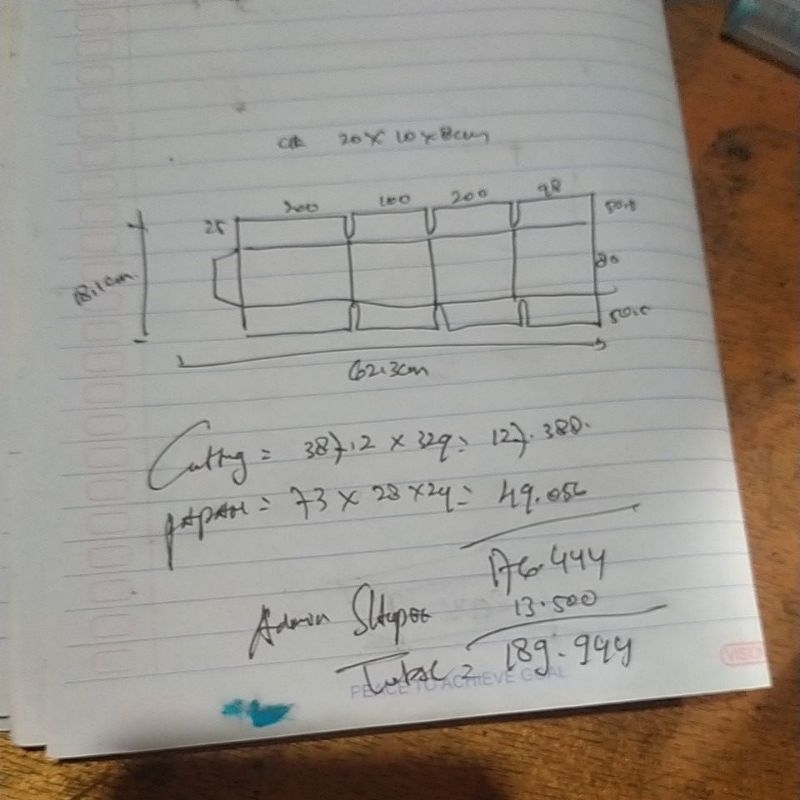 20 x 10 x 8cm
25 200 100 200 98 50.5
18.1cm 80
50.5
62.3cm
Cutting = 387.2 x 329 = 127.388.
papan = 73 x 28 x 24 = 49.056
176.444
Admin Shopee 13.500
Total = 189.944
PEACE TO ACHIEVE GOAL
VISION